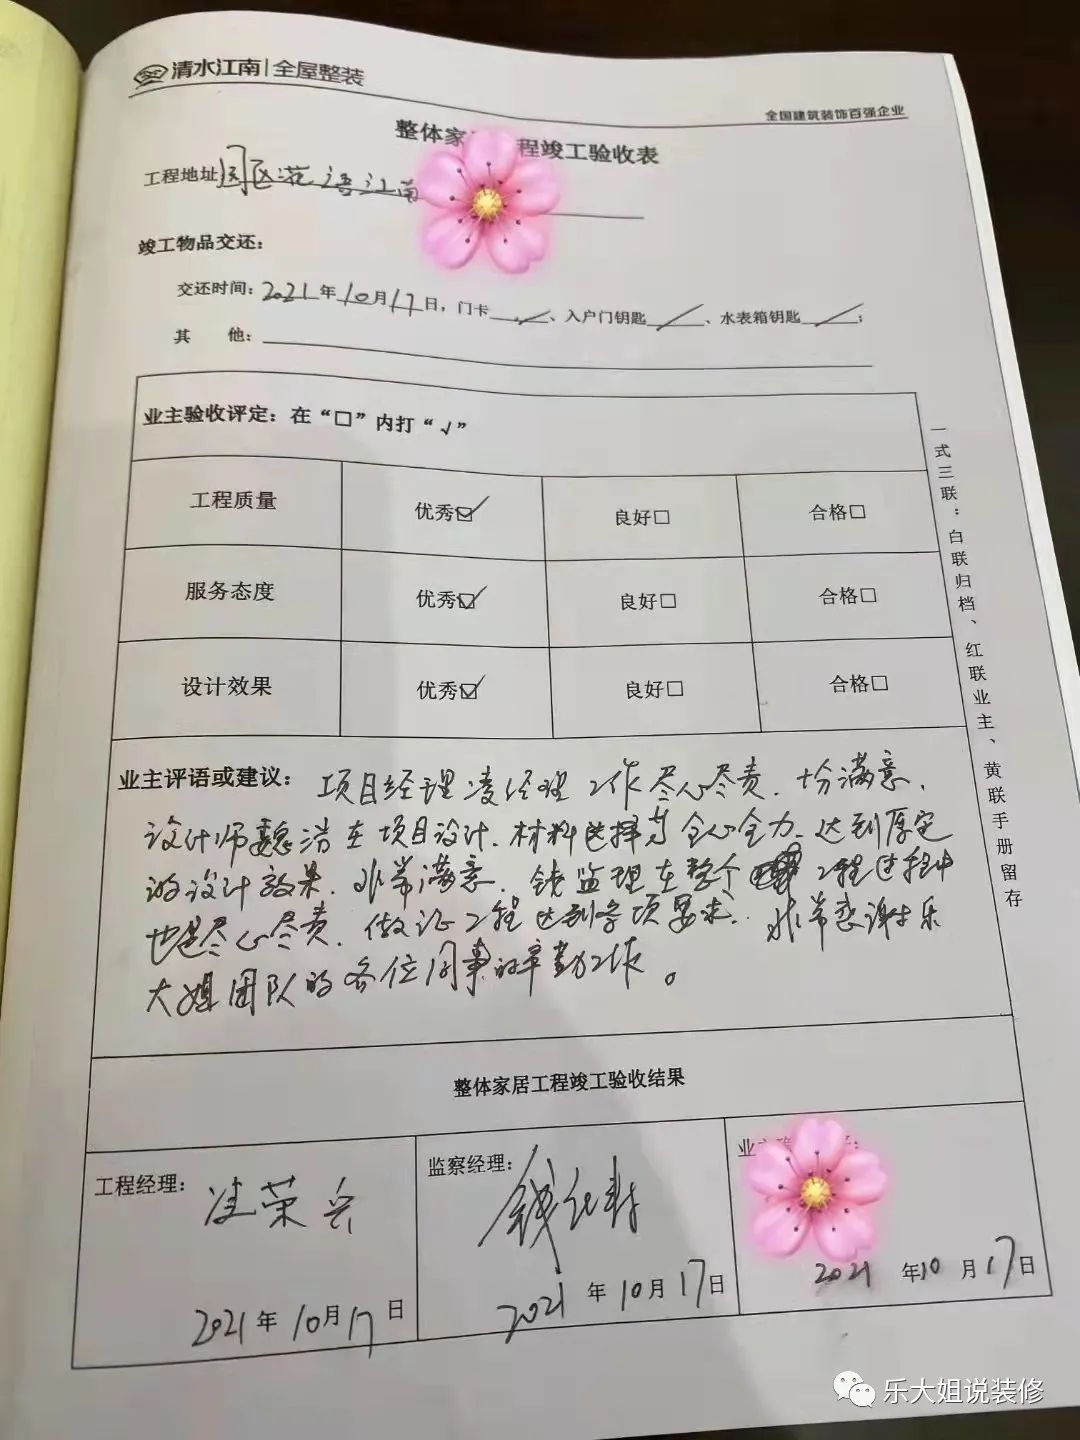 清水江南|全屋整装
全国建筑装饰百强企业
整体家 程竣工验收表
工程地址园区花语江南
竣工物品交还：
交还时间：2021年10月17日，门卡 、入户门钥匙 、水表箱钥匙 ；
其 他：
业主验收评定：在“□”内打“√”
工程质量 优秀☑ 良好□ 合格□
服务态度 优秀☑ 良好□ 合格□
设计效果 优秀☑ 良好□ 合格□
一式三联：白联归档、红联业主、黄联手册留存
业主评语或建议：项目经理凌经理工作尽心尽责，十分满意，
设计师魏浩在项目设计、材料选择等全心全力，达到原定
的设计效果，非常满意，钱监理在整个工程过程中
也是尽心尽责，做证工程达到各项要求，非常感谢乐
大姐团队的各位同事的辛勤工作。
整体家居工程竣工验收结果
工程经理：凌荣兵
2021年10月17日
监察经理：钱
2021年10月17日
业主
2021年10月17日
乐大姐说装修